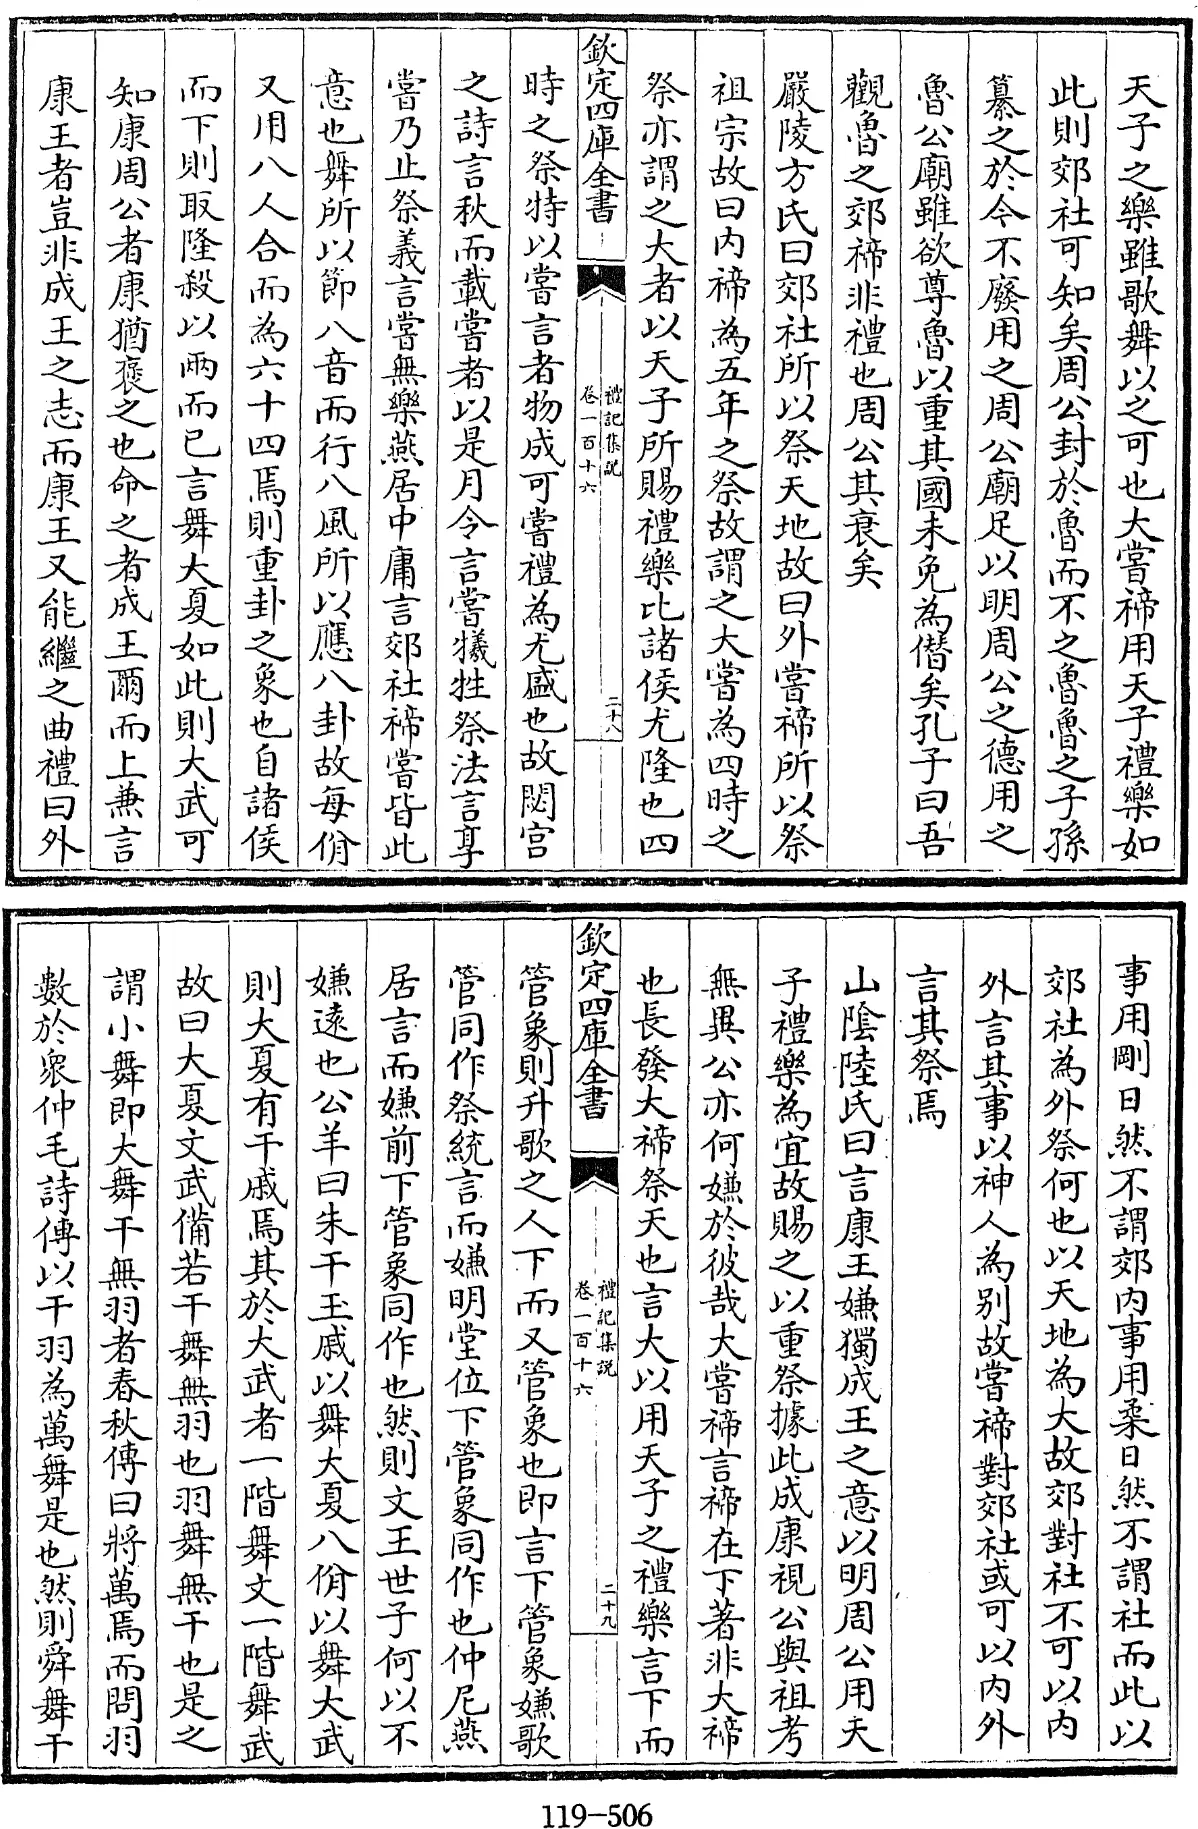 天子之樂雖歌舞以之可也大嘗禘用天子禮樂如
此則郊社可知矣周公封於魯而不之魯魯之子孫
纂之於今不廢用之周公廟足以明周公之德用之
魯公廟雖欲尊魯以重其國未免為僭矣孔子曰吾
觀魯之郊禘非禮也周公其衰矣
嚴陵方氏曰郊社所以祭天地故曰外嘗禘所以祭
祖宗故曰內禘為五年之祭故謂之大嘗為四時之
祭亦謂之大者以天子所賜禮樂比諸侯尤隆也四
欽定四庫全書
禮記集說
卷一百十六
二十八
時之祭特以嘗言者物成可嘗禮為尤盛也故閟宮
之詩言秋而載嘗者以是月令言嘗犧牲祭法言享
嘗乃止祭義言嘗無樂燕居中庸言郊社禘嘗皆此
意也舞所以節八音而行八風所以應八卦故每佾
又用八人合而為六十四焉則重卦之象也自諸侯
而下則取隆殺以兩而已言舞大夏如此則大武可
知康周公者康猶襃之也命之者成王爾而上兼言
康王者豈非成王之志而康王又能繼之曲禮曰外
事用剛日然不謂郊內事用柔日然不謂社而此以
郊社為外祭何也以天地為大故郊對社不可以內
外言其事以神人為別故嘗禘對郊社或可以內外
言其祭焉
山陰陸氏曰言康王嫌獨成王之意以明周公用天
子禮樂為宜故賜之以重祭據此成康視公與祖考
無異公亦何嫌於彼哉大嘗禘言禘在下著非大禘
也長發大禘祭天也言大以用天子之禮樂言下而
欽定四庫全書
禮記集說
卷一百十六
二十九
管象則升歌之人下而又管象也即言下管象嫌歌
管同作祭統言而嫌明堂位下管象同作也仲尼燕
居言而嫌前下管象同作也然則文王世子何以不
嫌遠也公羊曰朱干玉戚以舞大夏八佾以舞大武
則大夏有干戚焉其於大武者一階舞文一階舞武
故曰大夏文武備若干舞無羽也羽舞無干也是之
謂小舞即大舞干無羽者春秋傳曰將萬焉而問羽
數於眾仲毛詩傳以干羽為萬舞是也然則舜舞干
119-506